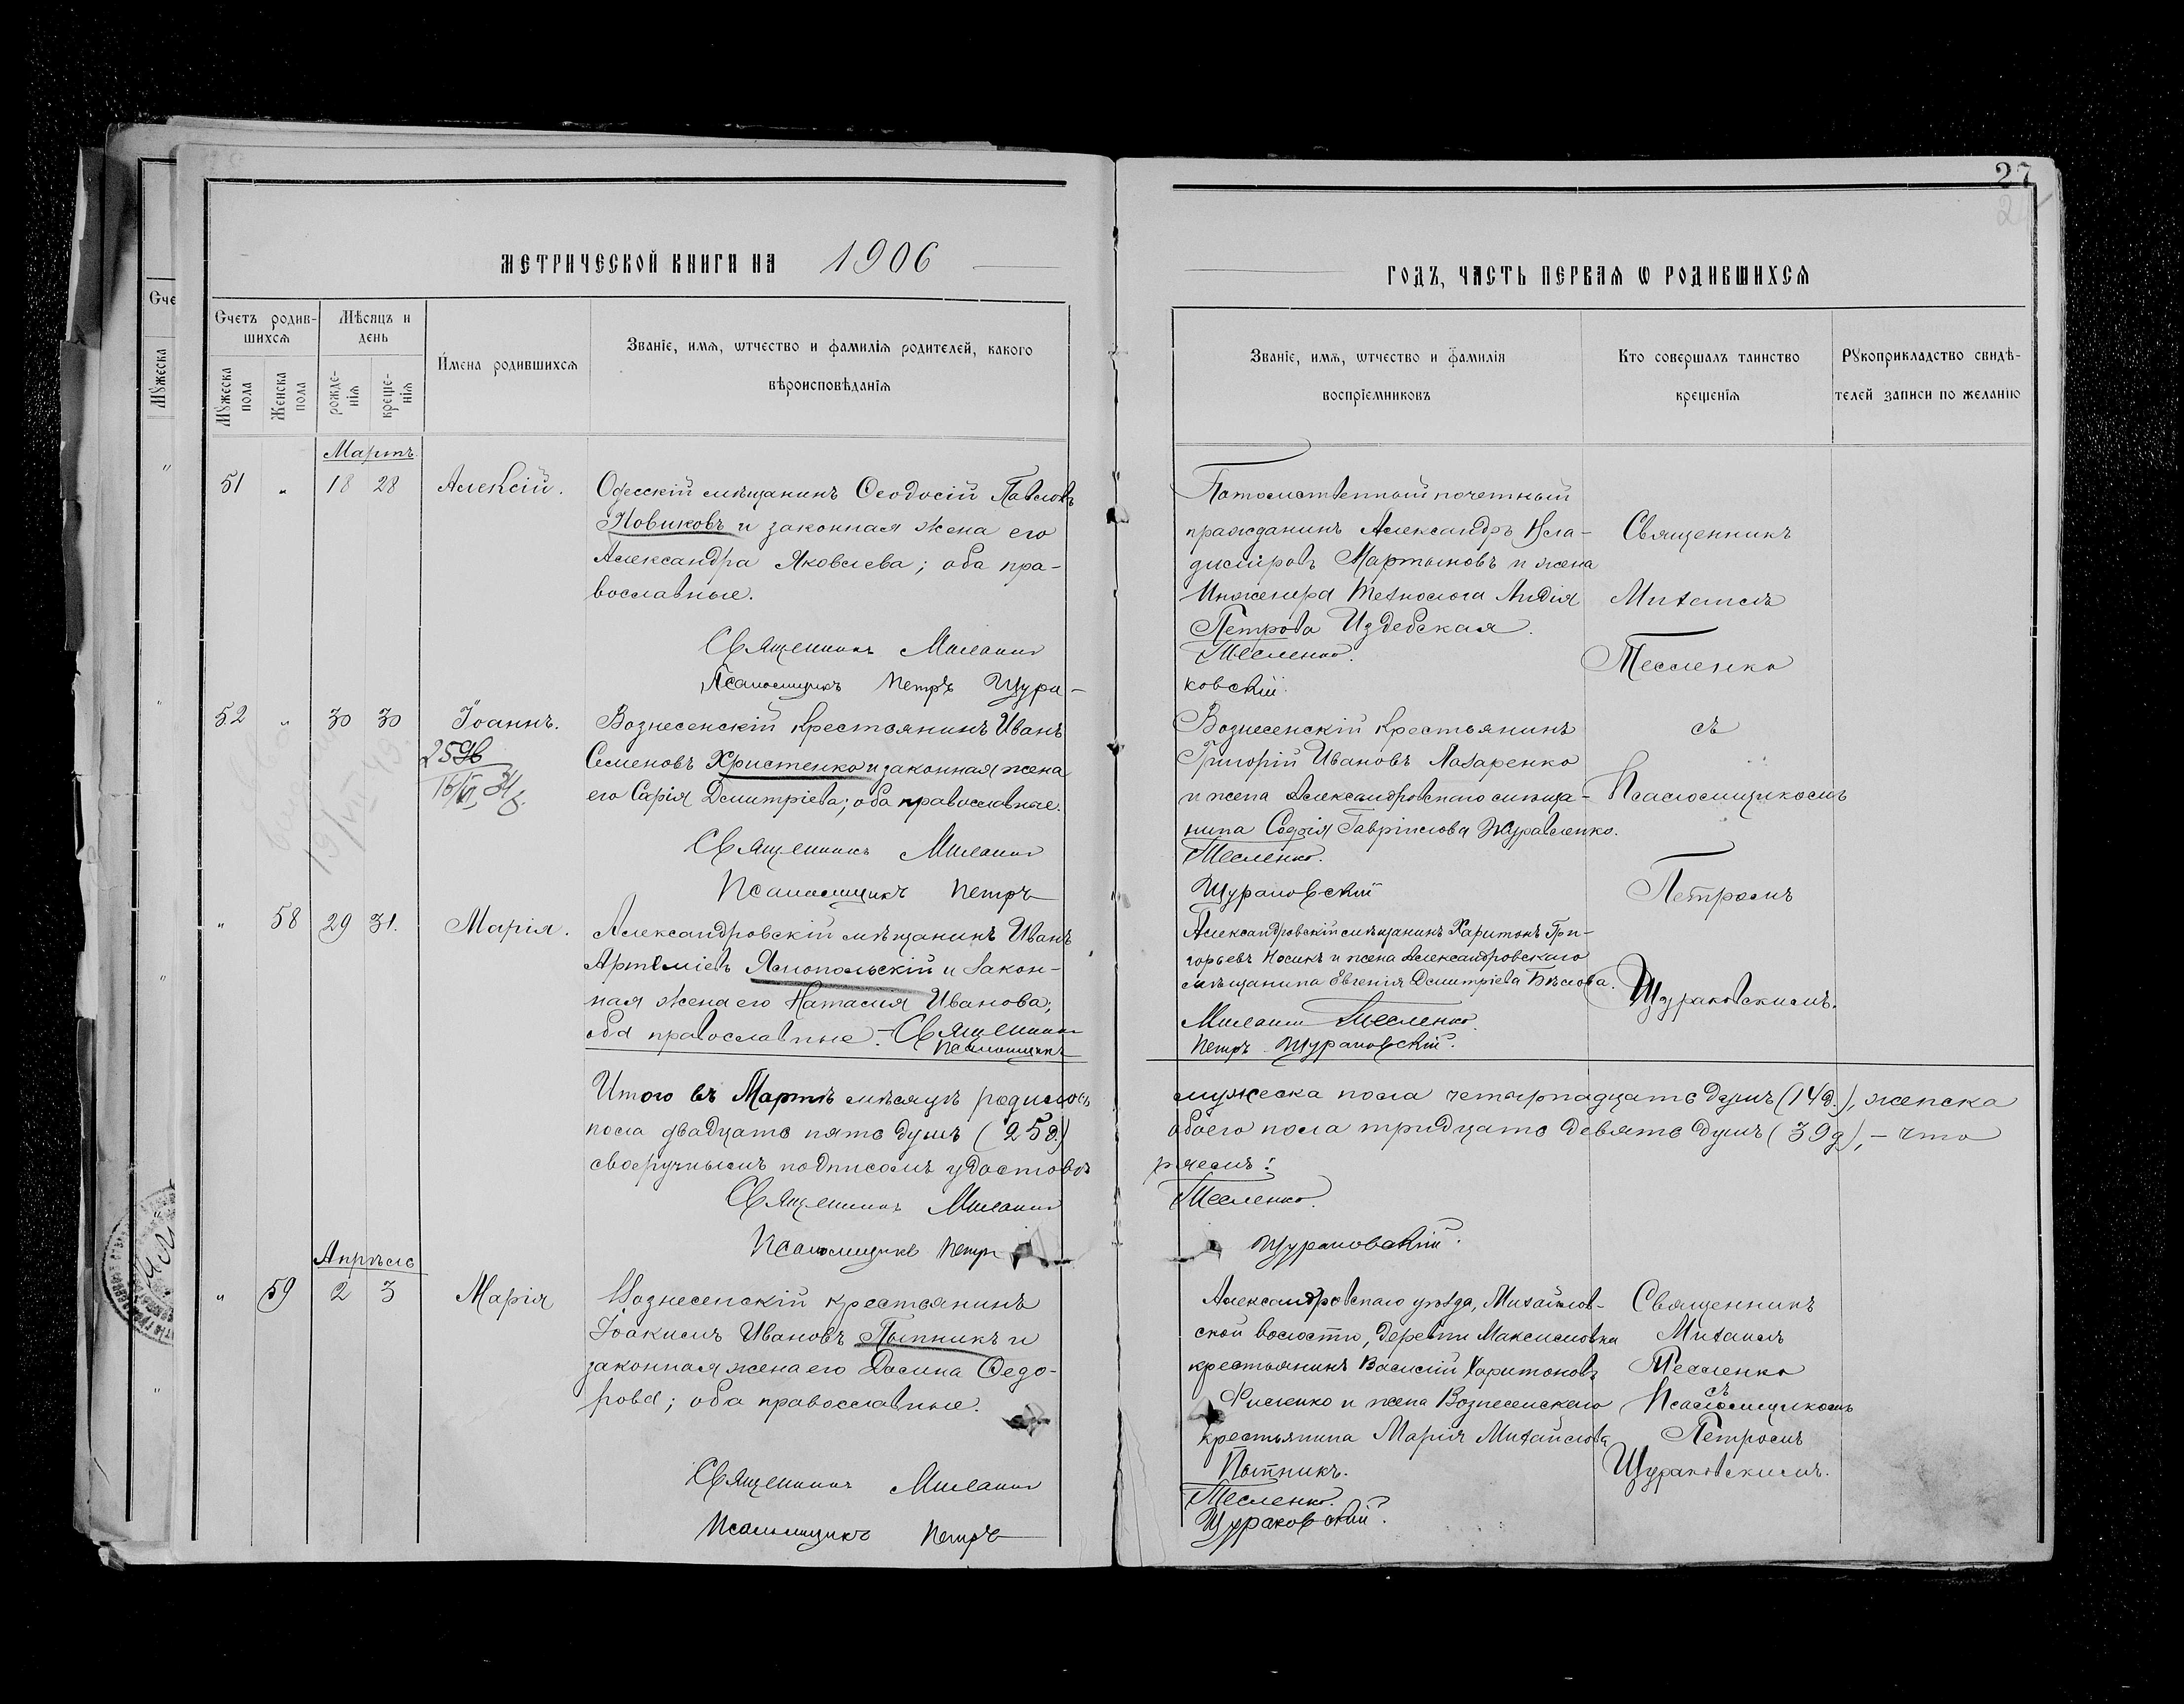 27
МЕТРИЧЕСКОЙ КНИГИ НА 1906
ГОДЪ, ЧАСТЬ ПЕРВАЯ Ѡ РОДИВШИХСЯ
Счетъ родив-
шихся
Мужеска пола
Женска пола
Мѣсяцъ и
день
рожде-
нія
креще-
нія
Имена родившихся
Званіе, имя, ѡтчество и фамилія родителей, какого
вѣроисповѣданія
Званіе, имя, ѡтчество и фамилія
воспріемниковъ
Кто совершалъ таинство
крещенія
Рукоприкладство свидѣ-
телей записи по желанію
Мартъ
51 " 18 28 Алексій.
Одесскій мѣщанинъ Ѳеодосій Павловъ
Новиковъ и законная жена его
Александра Яковлева; оба пра-
вославные.
Священникъ Михаилъ
Псаломщикъ Петръ Щура-
Потомственный почетный
гражданинъ Александръ Вла-
диміровъ Мартыновъ и жена
Инженера Технолога Лидія
Петрова Издебская.
Тесленко.
ковскій.
Священникъ
Михаилъ
Тесленко
52 " 30 30 Іоаннъ.
Вознесенскій крестьянинъ Иванъ
Семеновъ Христенко и законная жена
его Сарія Димитріева; оба православные.
Священникъ Михаилъ
Псаломщикъ Петръ
Вознесенскій крестьянинъ
Григорій Ивановъ Назаренко
и жена Александровскаго мѣща-
нина Софія Гавріилова Журавленко.
Тесленко.
Щураковскій
съ
Псаломщикомъ
Петромъ
" 58 29 31. Марія.
Александровскій мѣщанинъ Иванъ
Артеміевъ Яснопольскій и закон-
ная жена его Наталія Иванова;
оба православные. Священникъ
Псаломщикъ
Александровскій мѣщанинъ Харитонъ Гри-
горьевъ Носикъ и жена Александровскаго
мѣщанина Евгенія Димитріева Бѣлова.
Михаилъ Тесленко.
Петръ Щураковскій.
Щураковскимъ.
Итого въ Мартѣ мѣсяцѣ родилось
мужеска пола четырнадцать душъ (14 д.), женска
пола двадцать пять душъ (25 д.)
обоего пола тридцать девять душъ (39 д), – что
своеручнымъ подписомъ удостовѣ
ряемъ:
Священникъ Михаилъ
Тесленко.
Псаломщикъ Петръ
Щураковскій.
Апрѣль
" 59 2 3 Марія
Вознесенскій крестьянинъ
Іоакимъ Ивановъ Пытникъ и
законная жена его Домна Ѳедо-
рова; оба православные.
Священникъ Михаилъ
Псаломщикъ Петръ
Александровскаго уѣзда, Михайлов-
ской волости, деревни Максимовки
крестьянинъ Василій Харитоновъ
Фисенко и жена Вознесенскаго
крестьянина Марія Михайлова
Пытникъ.
Тесленко.
Щураковскій.
Священникъ
Михаилъ
Тесленко
съ
Псаломщикомъ
Петромъ
Щураковскимъ.